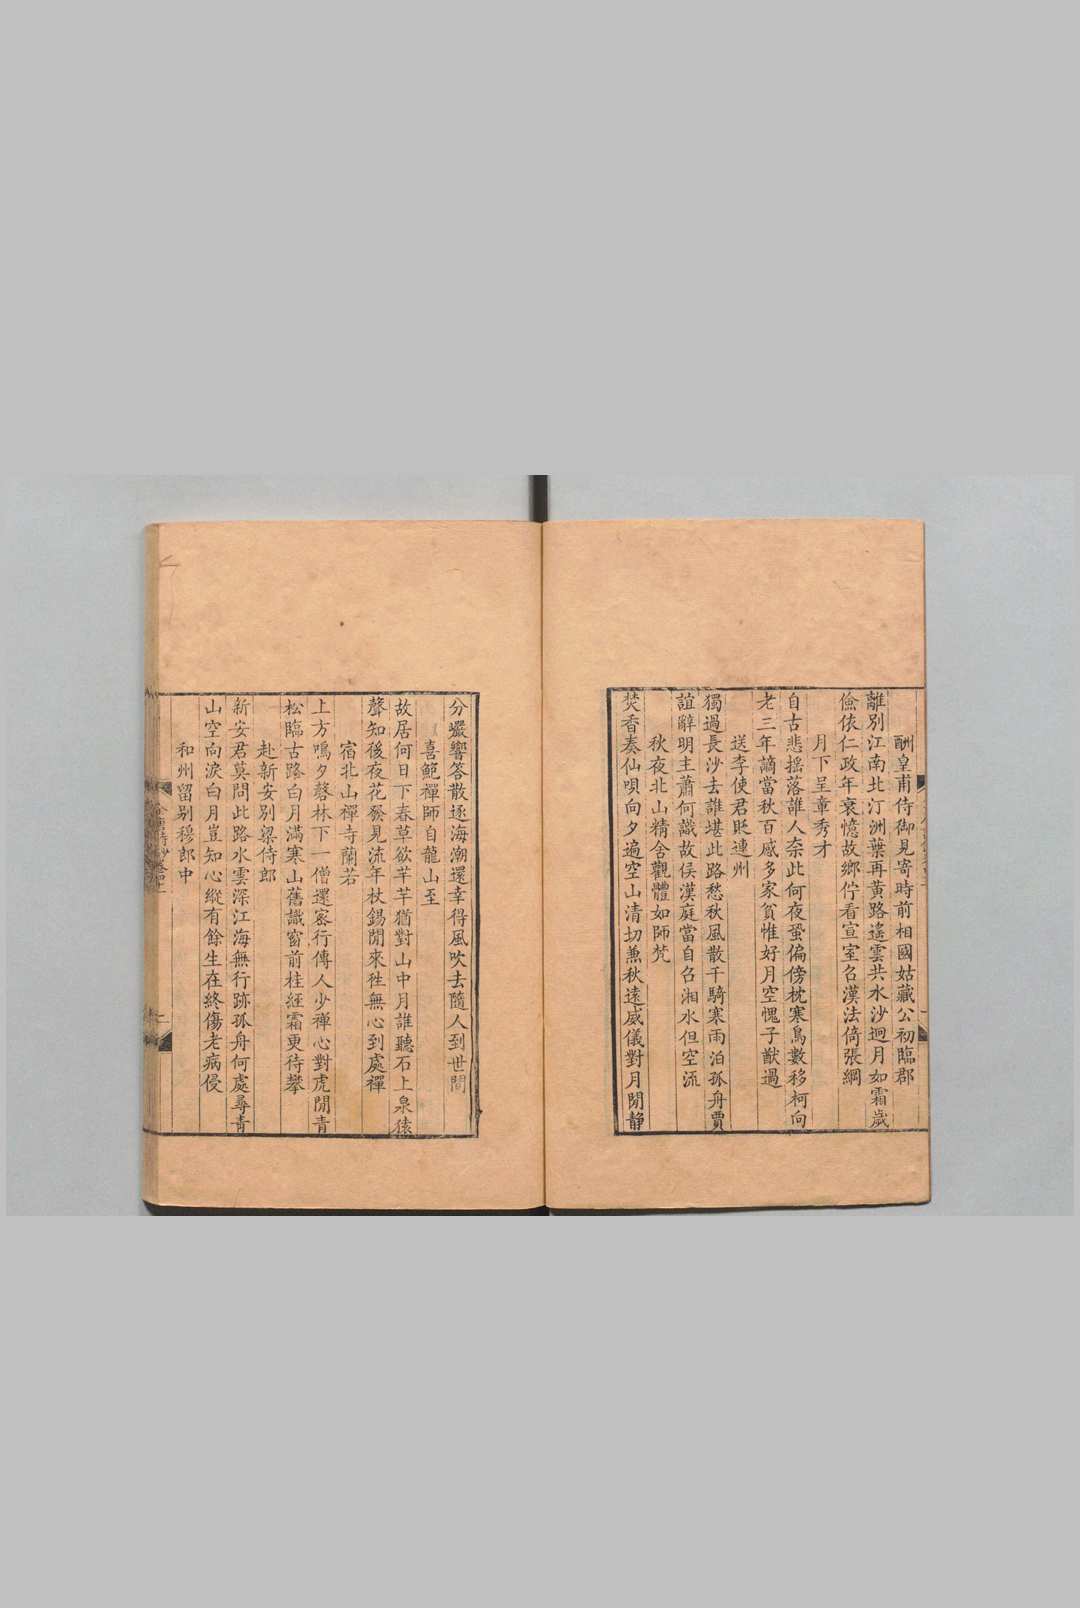 酬皇甫侍御見寄時前相國姑藏公初臨郡
離別江南北汀洲葉再黄路遙雲共水沙迥月如霜歲
儉依仁政年衰憶故鄉佇看宣室召漢法倚張綱
月下呈章秀才
自古悲搖落誰人奈此何夜蛩偏傍枕寒鳥數移柯向
老三年謫當秋百感多家貧惟好月空愧子猷過
送李使君貶連州
獨過長沙去誰堪此路愁秋風散千騎寒雨泊孤舟賈
誼辭明主蕭何識故侯漢庭當自召湘水但空流
秋夜北山精舍觀體如師梵
焚香奏仙唄向夕遍空山清切兼秋遠威儀對月閒静
分巖響答散逐海潮還幸得風吹去隨人到世間
喜鮑禪師自龍山至
故居何日下春草欲芊芊猶對山中月誰聽石上泉猿
聲知後夜花發見流年杖錫閒來往無心到處禪
宿北山禪寺蘭若
上方鳴夕磬林下一僧還密行傳人少禪心對虎閒青
松臨古路白月滿寒山舊識窗前桂經霜更待攀
赴新安別梁侍郎
新安君莫問此路水雲深江海無行跡孤舟何處尋青
山空向淚白月豈知心縱有餘生在終傷老病侵
和州留别穆郎中